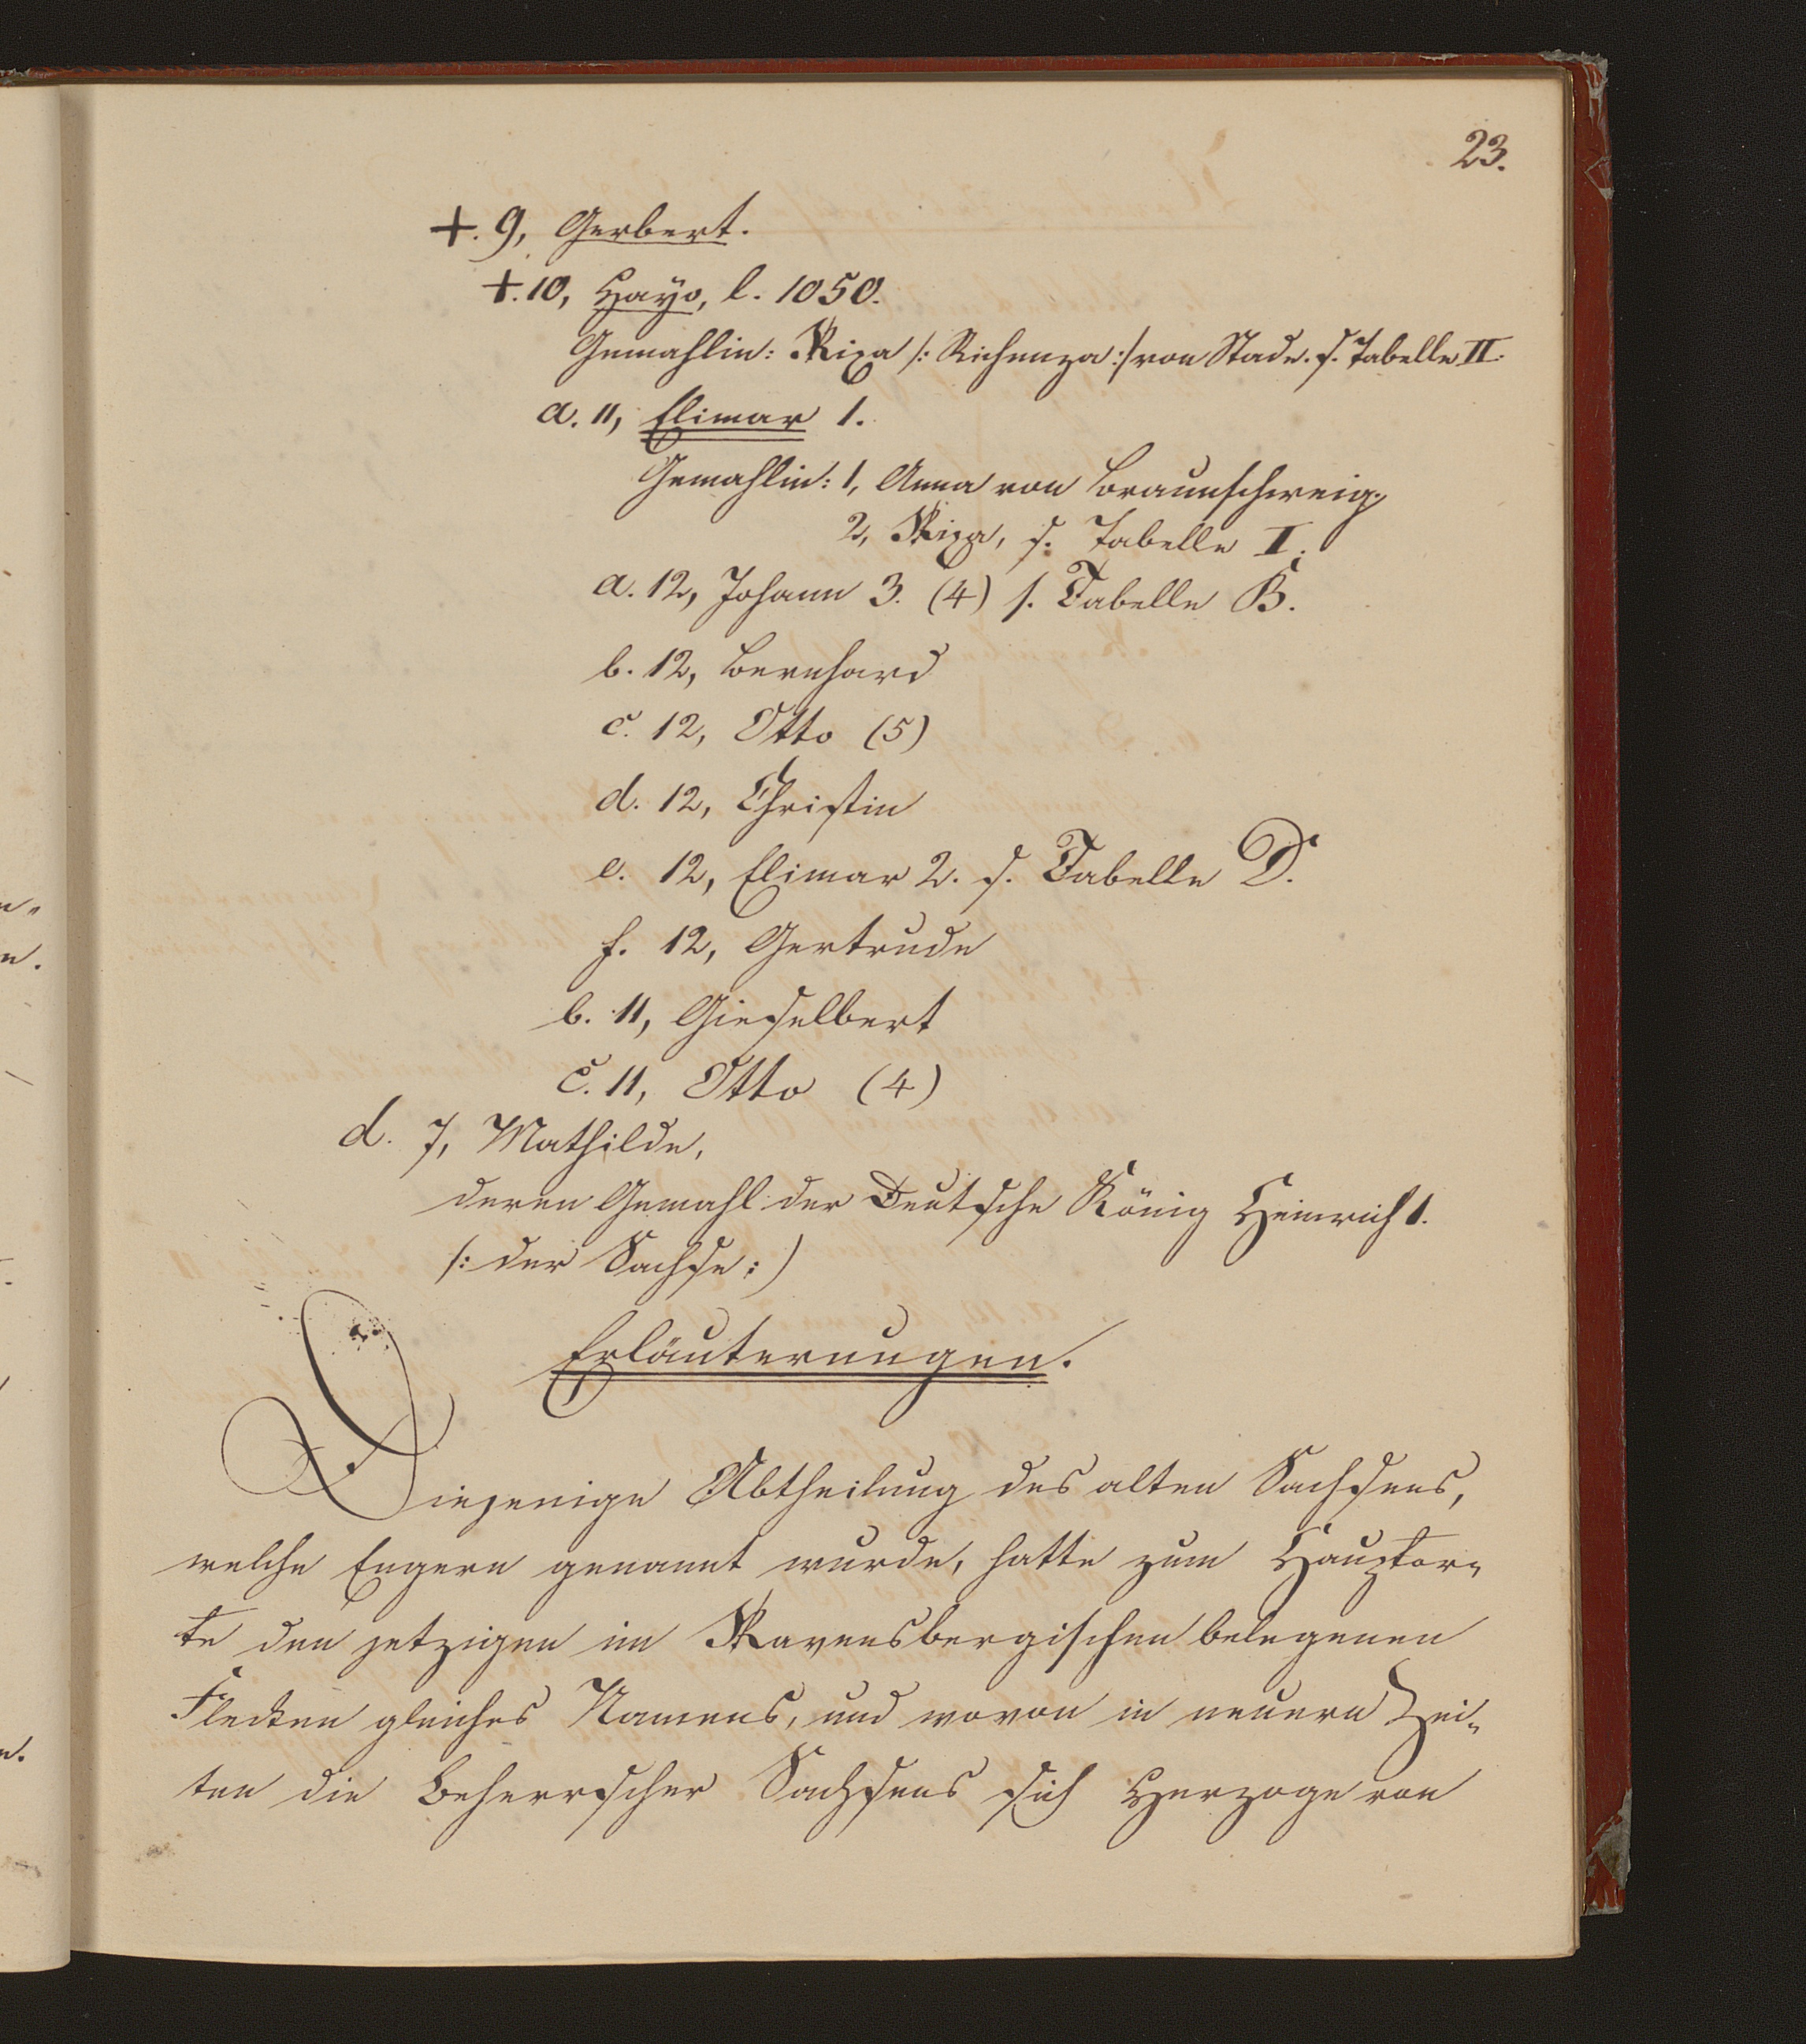 23.
+. 9, Gerbert.
+. 10, Hayo, l. 1050.
Gemahlin: Rixa /: Richenza :/ von Stade. s. Tabelle II.
a. 11, Elimar 1.
Gemahlin: 1, Anna von Braunschweig,
2, Rixa, s. Tabelle I.
a. 12, Johann 3. (4) s. Tabelle B.
b. 12, Bernhard
c. 12, Otto (5)
d. 12, Christin
e. 12, Elimar 2. s. Tabelle D.
f. 12, Gertrude
b. 11, Gieselbert
c. 11, Otto (4)
d. 7, Mathilde,
deren Gemahl der Deutsche König Heinrich 1.
/: der Sachse :)
Erläuterungen.
Diejenige Abtheilung des alten Sachsens,
welche Engern genannt wurde, hatte zum Hauptor-
te den jetzigen im Ravensbergischen belegenen
Flecken gleiches Namens, und wovon in neuern Zei-
ten die Beherrscher Sachsens sich Herzoge von